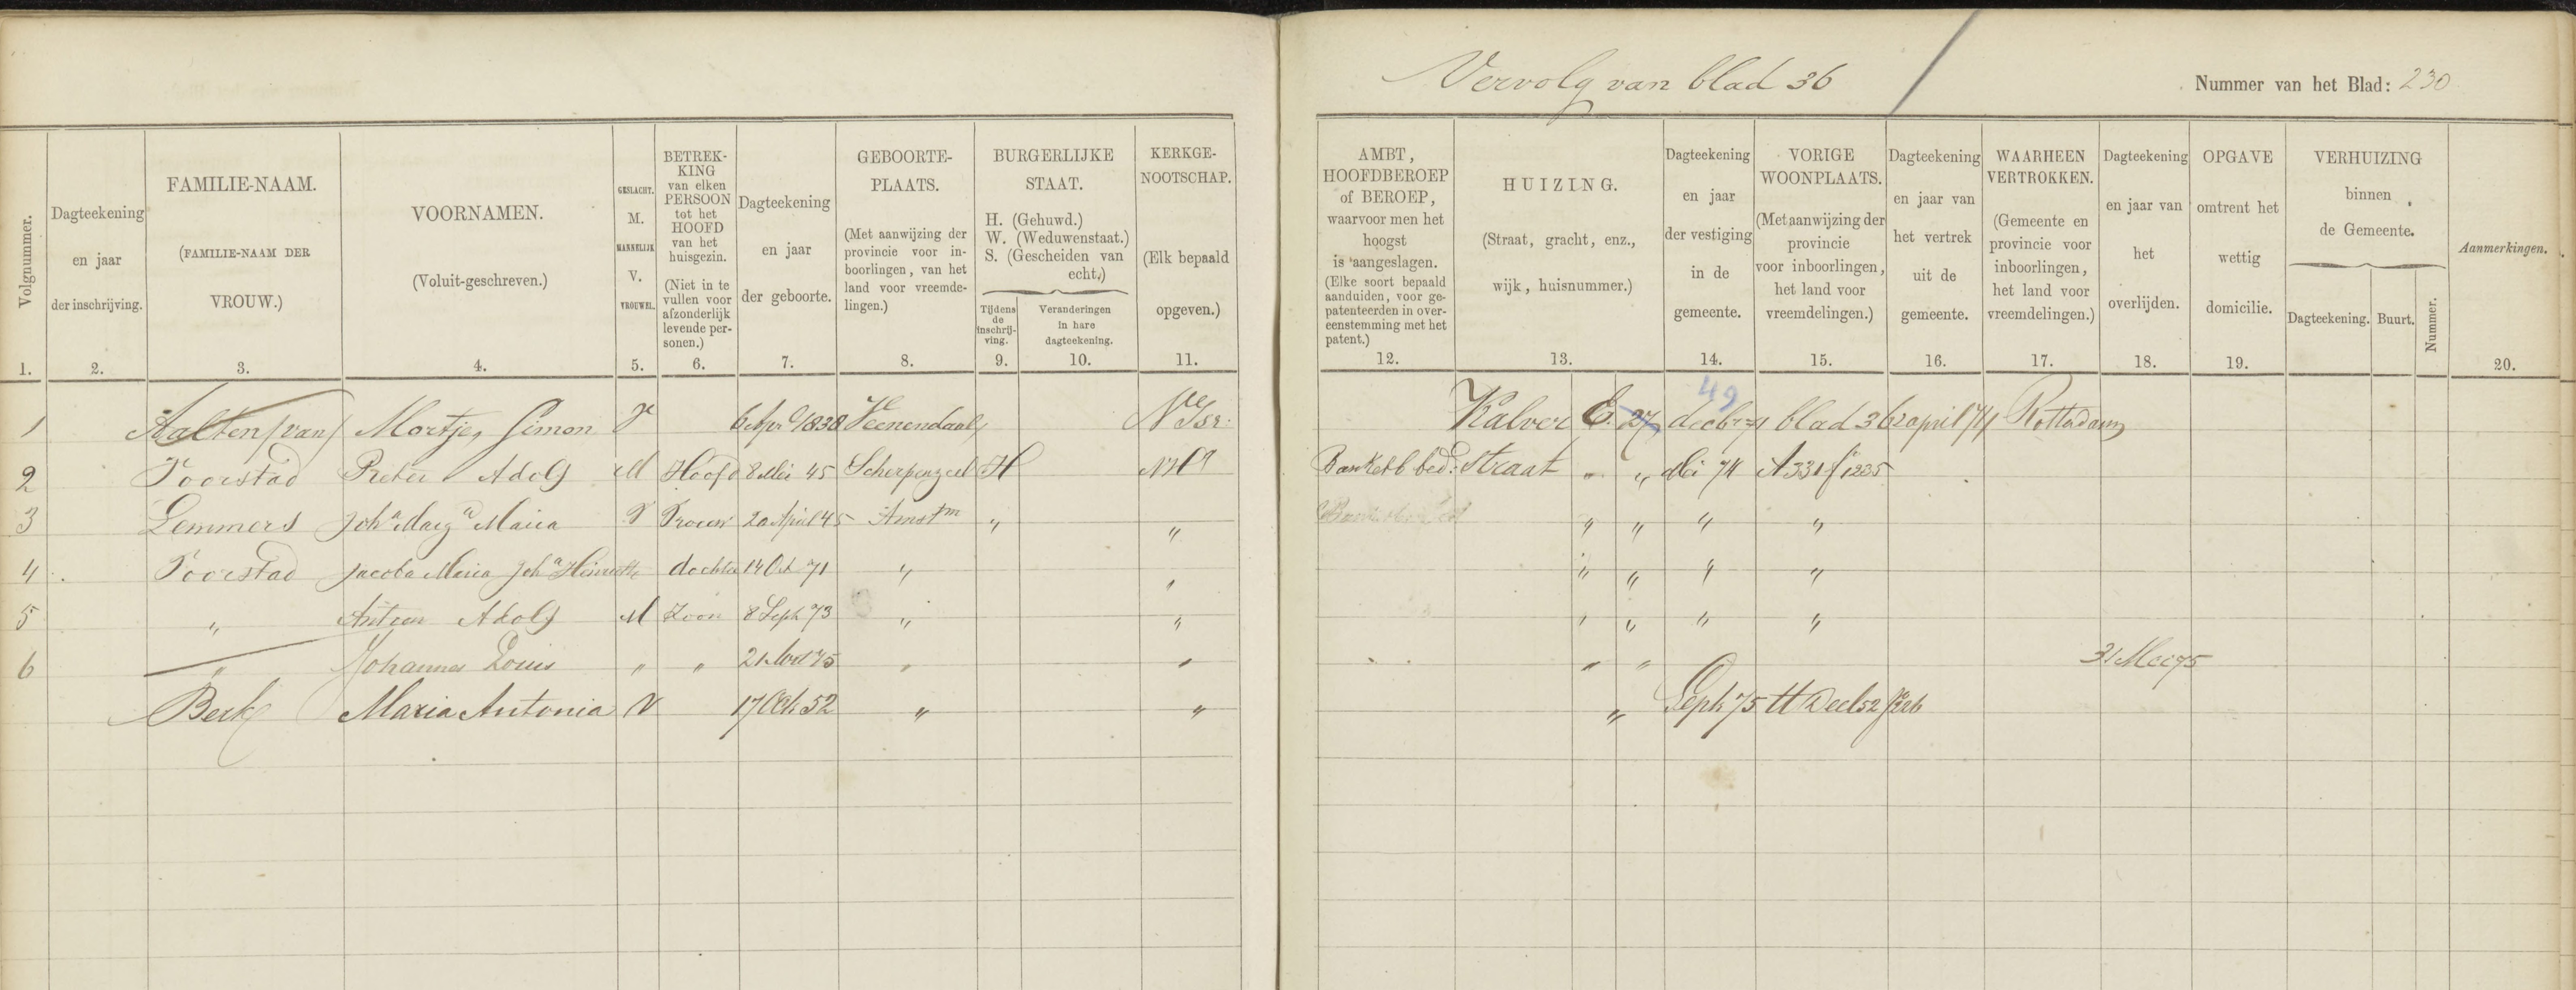 Vervolg van blad 36
Nummer van het Blad: 230
Volgnummer.
1.
Dagteekening
en jaar
der inschrijving.
2.
FAMILIE-NAAM.
(FAMILIE-NAAM DER
VROUW.)
3.
VOORNAMEN.
(Voluit-geschreven.)
4.
GESLACHT.
M.
MANNELIJK
V.
VROUWEL.
5.
BETREK-
KING
van elken
PERSOON
tot het
HOOFD
van het
huisgezin.
(Niet in te
vullen voor
afzonderlijk
levende per-
sonen.)
6.
Dagteekening
en jaar
der geboorte.
7.
GEBOORTE-
PLAATS.
(Met aanwijzing der
provincie voor in-
boorlingen, van het
land voor vreemde-
lingen.)
8.
BURGERLIJKE
STAAT.
H. (Gehuwd.)
W. (Weduwenstaat.)
S. (Gescheiden van
echt.)
Tijdens
de
inschrij-
ving.
9.
Veranderingen
in hare
dagteekening.
10.
KERKGE-
NOOTSCHAP.
(Elk bepaald
opgeven.)
11.
AMBT,
HOOFDBEROEP
of BEROEP,
waarvoor men het
hoogst
is aangeslagen.
(Elke soort bepaald
aanduiden, voor ge-
patenteerden in over-
eenstemming met het
patent.)
12.
HUIZING.
(Straat, gracht, enz.,
wijk, huisnummer.)
13.
Dagteekening
en jaar
der vestiging
in de
gemeente.
14.
VORIGE
WOONPLAATS.
(Met aanwijzing der
provincie
voor inboorlingen,
het land voor
vreemdelingen.)
15.
Dagteekening
en jaar van
het vertrek
uit de
gemeente.
16.
WAARHEEN
VERTROKKEN.
(Gemeente en
provincie voor
inboorlingen,
het land voor
vreemdelingen.)
17.
Dagteekening
en jaar van
het
overlijden.
18.
OPGAVE
omtrent het
wettig
domicilie.
19.
VERHUIZING
binnen
de Gemeente.
Dagteekening. Buurt. Nummer.
Aanmerkingen.
20.
49
1 Aalten (van) Mortje, Simon V 6 Apr 1838 Veenendaal Kalver E. 27 blad 36 2 april 74 Rotterdam
2 Voorstad Pieter Adolf M Hoofd 8 Mei 45 Scherpenzeel H NH Banketb bed: straat " " Mei 74 A 331 f 1235
3 Lemmers Joha Marga Maria V Vrouw 20 April 45 Amstm " " " " " "
4 Voorstad Jacoba Maria Joha dochter 14 Oct 71 " " " " " "
5 " Anton Adolf M Zoon 8 Sept 73 " " " " " "
6 " Johannes Louis " " 21 75 " " " " 31 Mei 75
Berk Maria Antonia V 17 Oct 52 " " " Sept 75 tt Deel 52